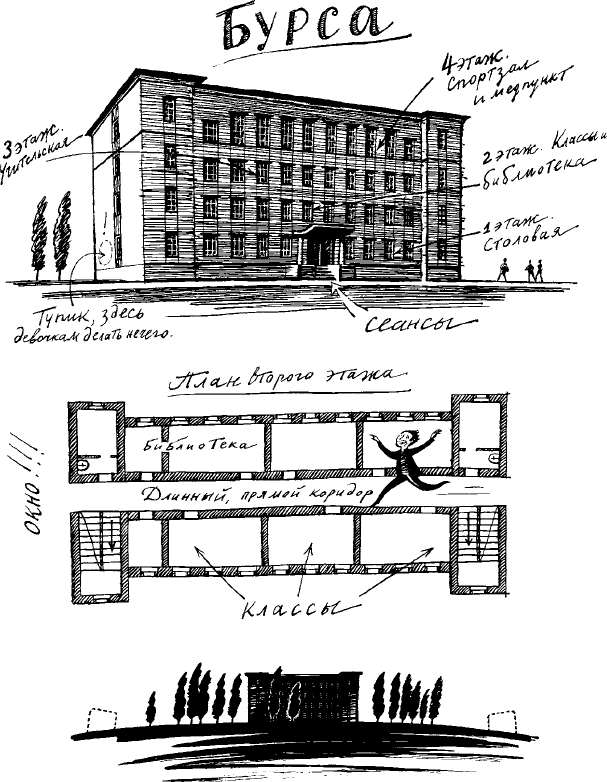 Бурса
4 этаж.
Спортзал
и медпункт
3 этаж.
Учительская
2 этаж. Классы и
библиотека
1 этаж.
Столовая
Тупик, здесь
девочкам делать нечего.
сеансы
План второго этажа
Библиотека
окно!!!
Длинный, прямой коридор
Классы